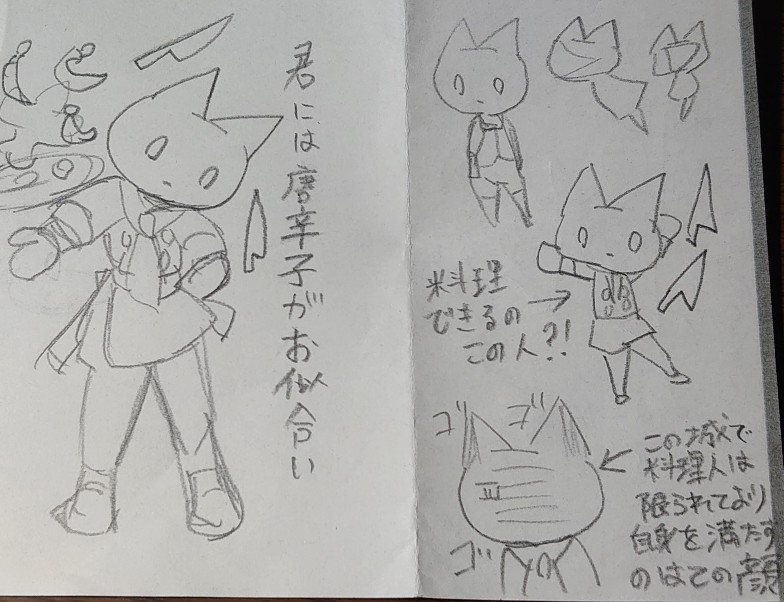 君には唐辛子がお似合い
料理
できるの
この人?!
ゴ
ゴ
ゴ
この城で
料理人は
限られており
自身を満たす
のはての顔